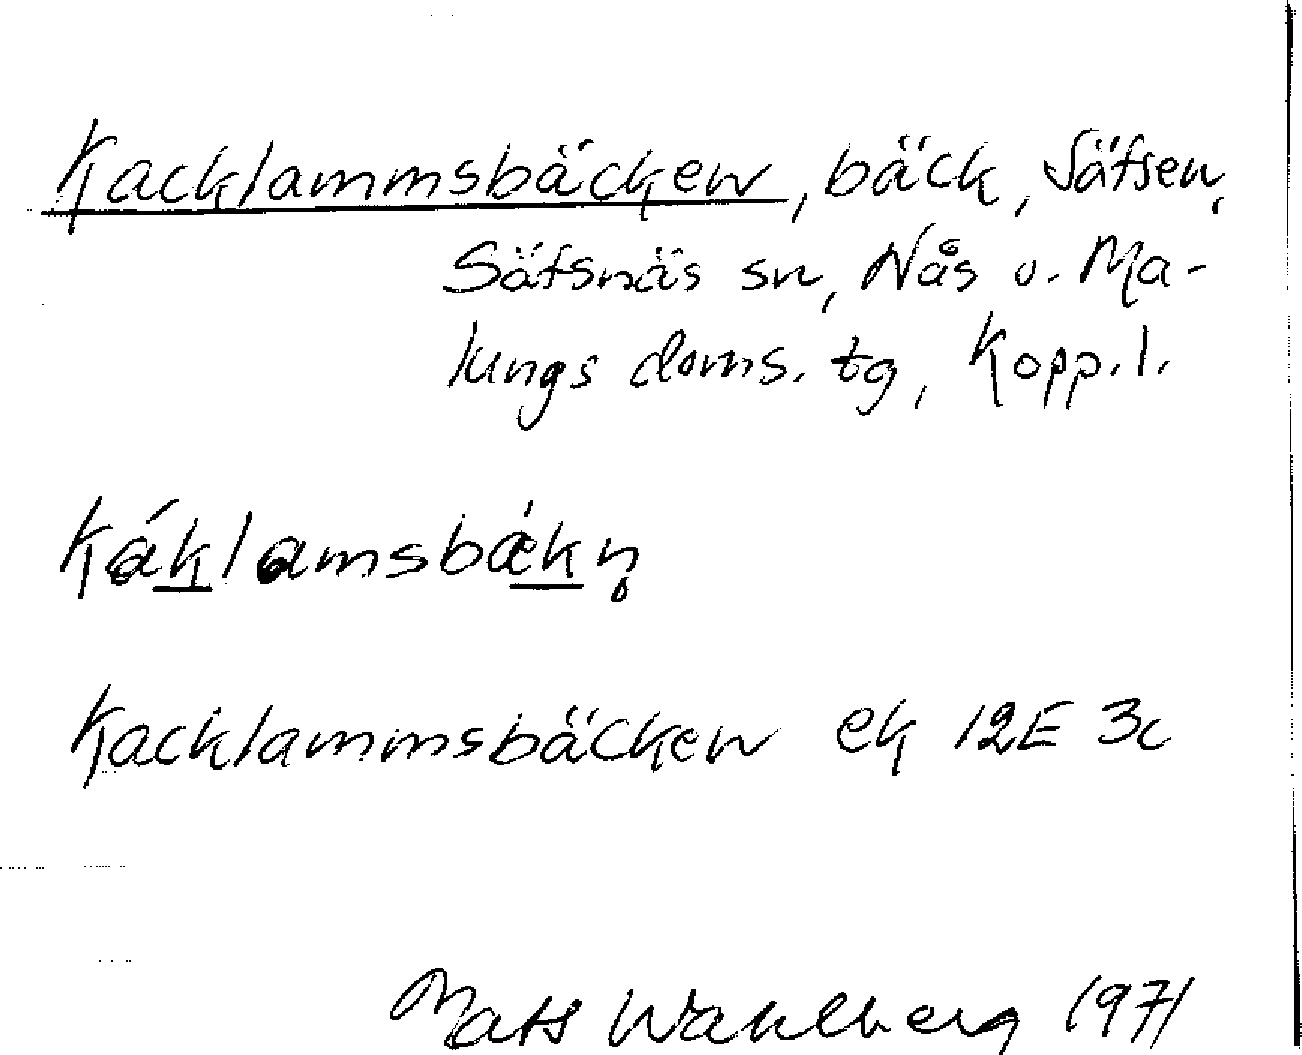 Kacklammsbäcken, bäck, Säfsen,
Säfsnäs sn, Nås o. Ma-
lungs doms. tg, Kopp. l.
káklamsbæ̀kn̥
Kacklammsbäcken ek 12E 3c
Mats Wahlberg 1971